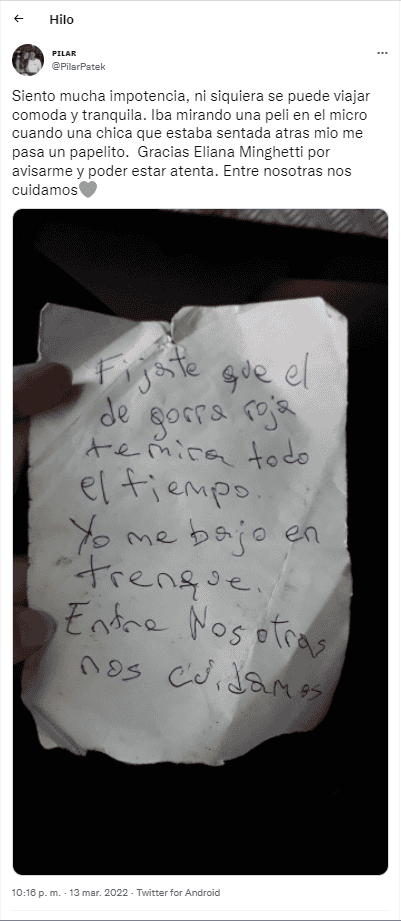 Hilo
PILAR
@PilarPatek
Siento mucha impotencia, ni siquiera se puede viajar
comoda y tranquila. Iba mirando una peli en el micro
cuando una chica que estaba sentada atras mio me
pasa un papelito. Gracias Eliana Minghetti por
avisarme y poder estar atenta. Entre nosotras nos
cuidamos
Fijate que el
de gorra roja
te mira todo
el tiempo.
Yo me bajo en
trenque.
Entre Nosotras
nos cuidamos
10:16 p. m. · 13 mar. 2022 · Twitter for Android